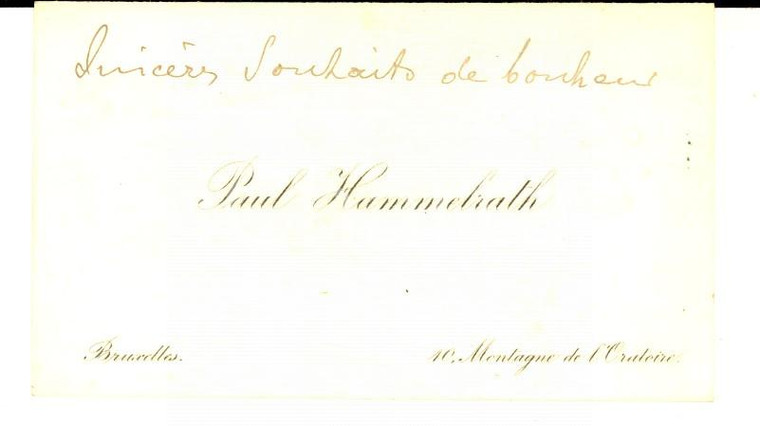 Sincères Souhaits de bonheur
Paul Hammelrath
Bruxelles.
10, Montagne de l'Oratoire.